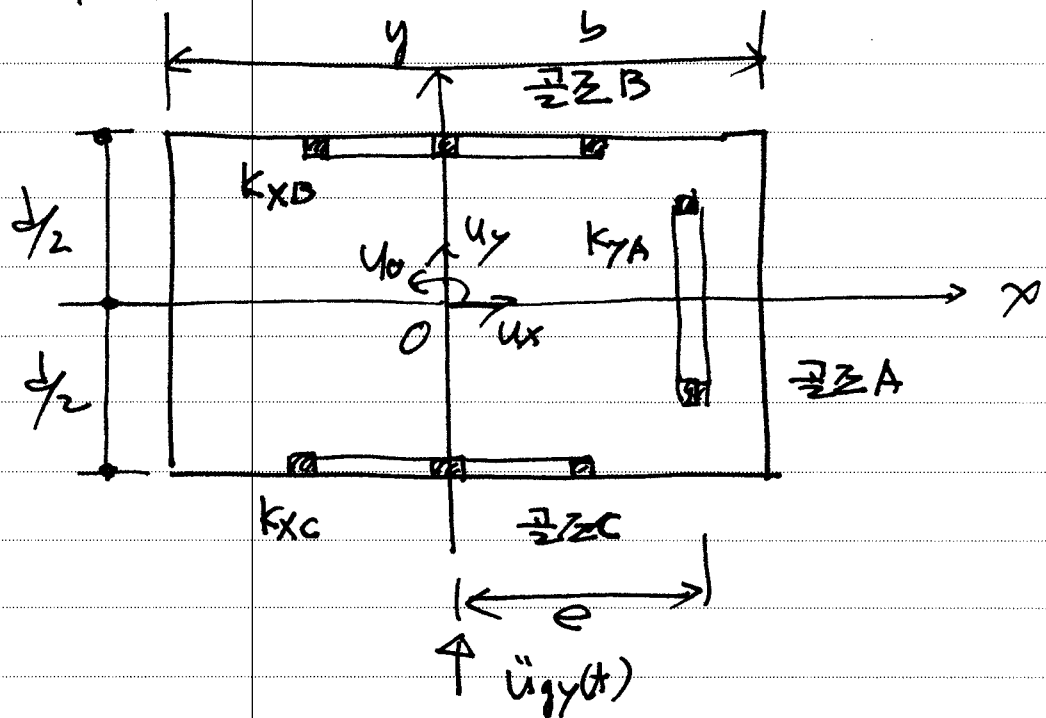 y
b
골조B
kxB
d/2
uy
uθ
kyA
x
O
ux
골조A
d/2
kxc
골조C
e
ügy(t)